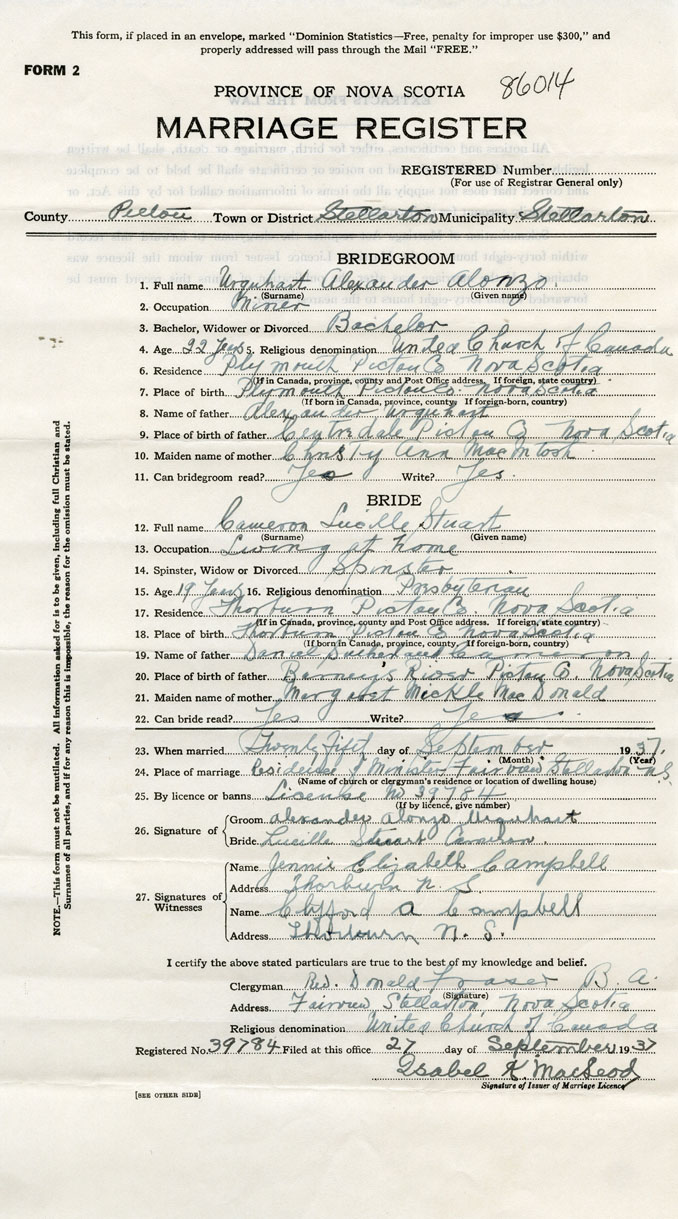 This form, if placed in an envelope, marked "Dominion Statistics—Free, penalty for improper use $300," and
properly addressed will pass through the Mail "FREE."
FORM 2
PROVINCE OF NOVA SCOTIA 86014
MARRIAGE REGISTER
REGISTERED Number
(For use of Registrar General only)
County Pictou Town or District Stellarton Municipality Stellarton
BRIDEGROOM
1. Full name Urquhart Alexander Alonzo
(Surname) (Given name)
2. Occupation Miner
3. Bachelor, Widower or Divorced Bachelor
4. Age 22 Years 5. Religious denomination United Church of Canada
6. Residence Plymouth Pictou Co. Nova Scotia
(If in Canada, province, county and Post Office address. If foreign, state country)
7. Place of birth Plymouth Pictou Co. Nova Scotia
(If born in Canada, province, county. If foreign-born, country)
8. Name of father Alexander Urquhart
9. Place of birth of father Centredale Pictou Co Nova Scotia
10. Maiden name of mother Christy Ann MacIntosh
11. Can bridegroom read? Yes Write? Yes
BRIDE
12. Full name Cameron Lucille Stuart
(Surname) (Given name)
13. Occupation Living at home
14. Spinster, Widow or Divorced Spinster
15. Age 19 Years 16. Religious denomination Presbyterian
17. Residence Thorburn Pictou Co. Nova Scotia
(If in Canada, province, county and Post Office address. If foreign, state country)
18. Place of birth Thorburn Pictou Co Nova Scotia
(If born in Canada, province, county. If foreign-born, country)
19. Name of father Daniel Sutherland Cameron
20. Place of birth of father Barney's River Pictou Co. Nova Scotia
21. Maiden name of mother Margaret Mickle MacDonald
22. Can bride read? Yes Write? Yes
23. When married Twenty Fift day of September 1937
(Month) (Year)
24. Place of marriage Residence of Minister, Fairview Stellarton N.S.
(Name of church or clergyman's residence or location of dwelling house)
25. By licence or banns License No 39784
(If by licence, give number)
26. Signature of Groom Alexander Alonzo Urquhart
Bride Lucille Stuart Cameron.
27. Signatures of Witnesses
Name Jennie Elizabeth Campbell
Address Thorburn N. S.
Name Clifford A Campbell
Address Thorburn N. S.
I certify the above stated particulars are true to the best of my knowledge and belief.
Clergyman Rev. Donald Fraser B. A.
(Signature)
Address Fairview Stellarton, Nova Scotia
Religious denomination United Church of Canada
Registered No. 39784 Filed at this office 27 day of September 1937
Isabel K. MacLeod
Signature of Issuer of Marriage Licence
[SEE OTHER SIDE]
NOTE.—This form must not be mutilated. All information asked for is to be given, including full Christian and
Surnames of all parties, and if for any reason this is impossible, the reason for the omission must be stated.